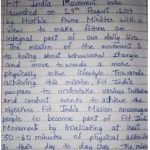 Fit India Movement was
launched on 29th August 2019
by Hon'ble Prime Minister with a
view make fitness an
integral part of our daily live.
The mission of the movement is
to bring about behavioural changes
and move towards a more
physically active lifestyle. Towards
achieving this mission, Fit India
proposes to undertake various
and conduct events to achieve the
objectives. Fit India Mission encourages
people to become part of Fit India
Movement by inculcating at least
30-60 minutes of physical activities
in their day to day lives. The